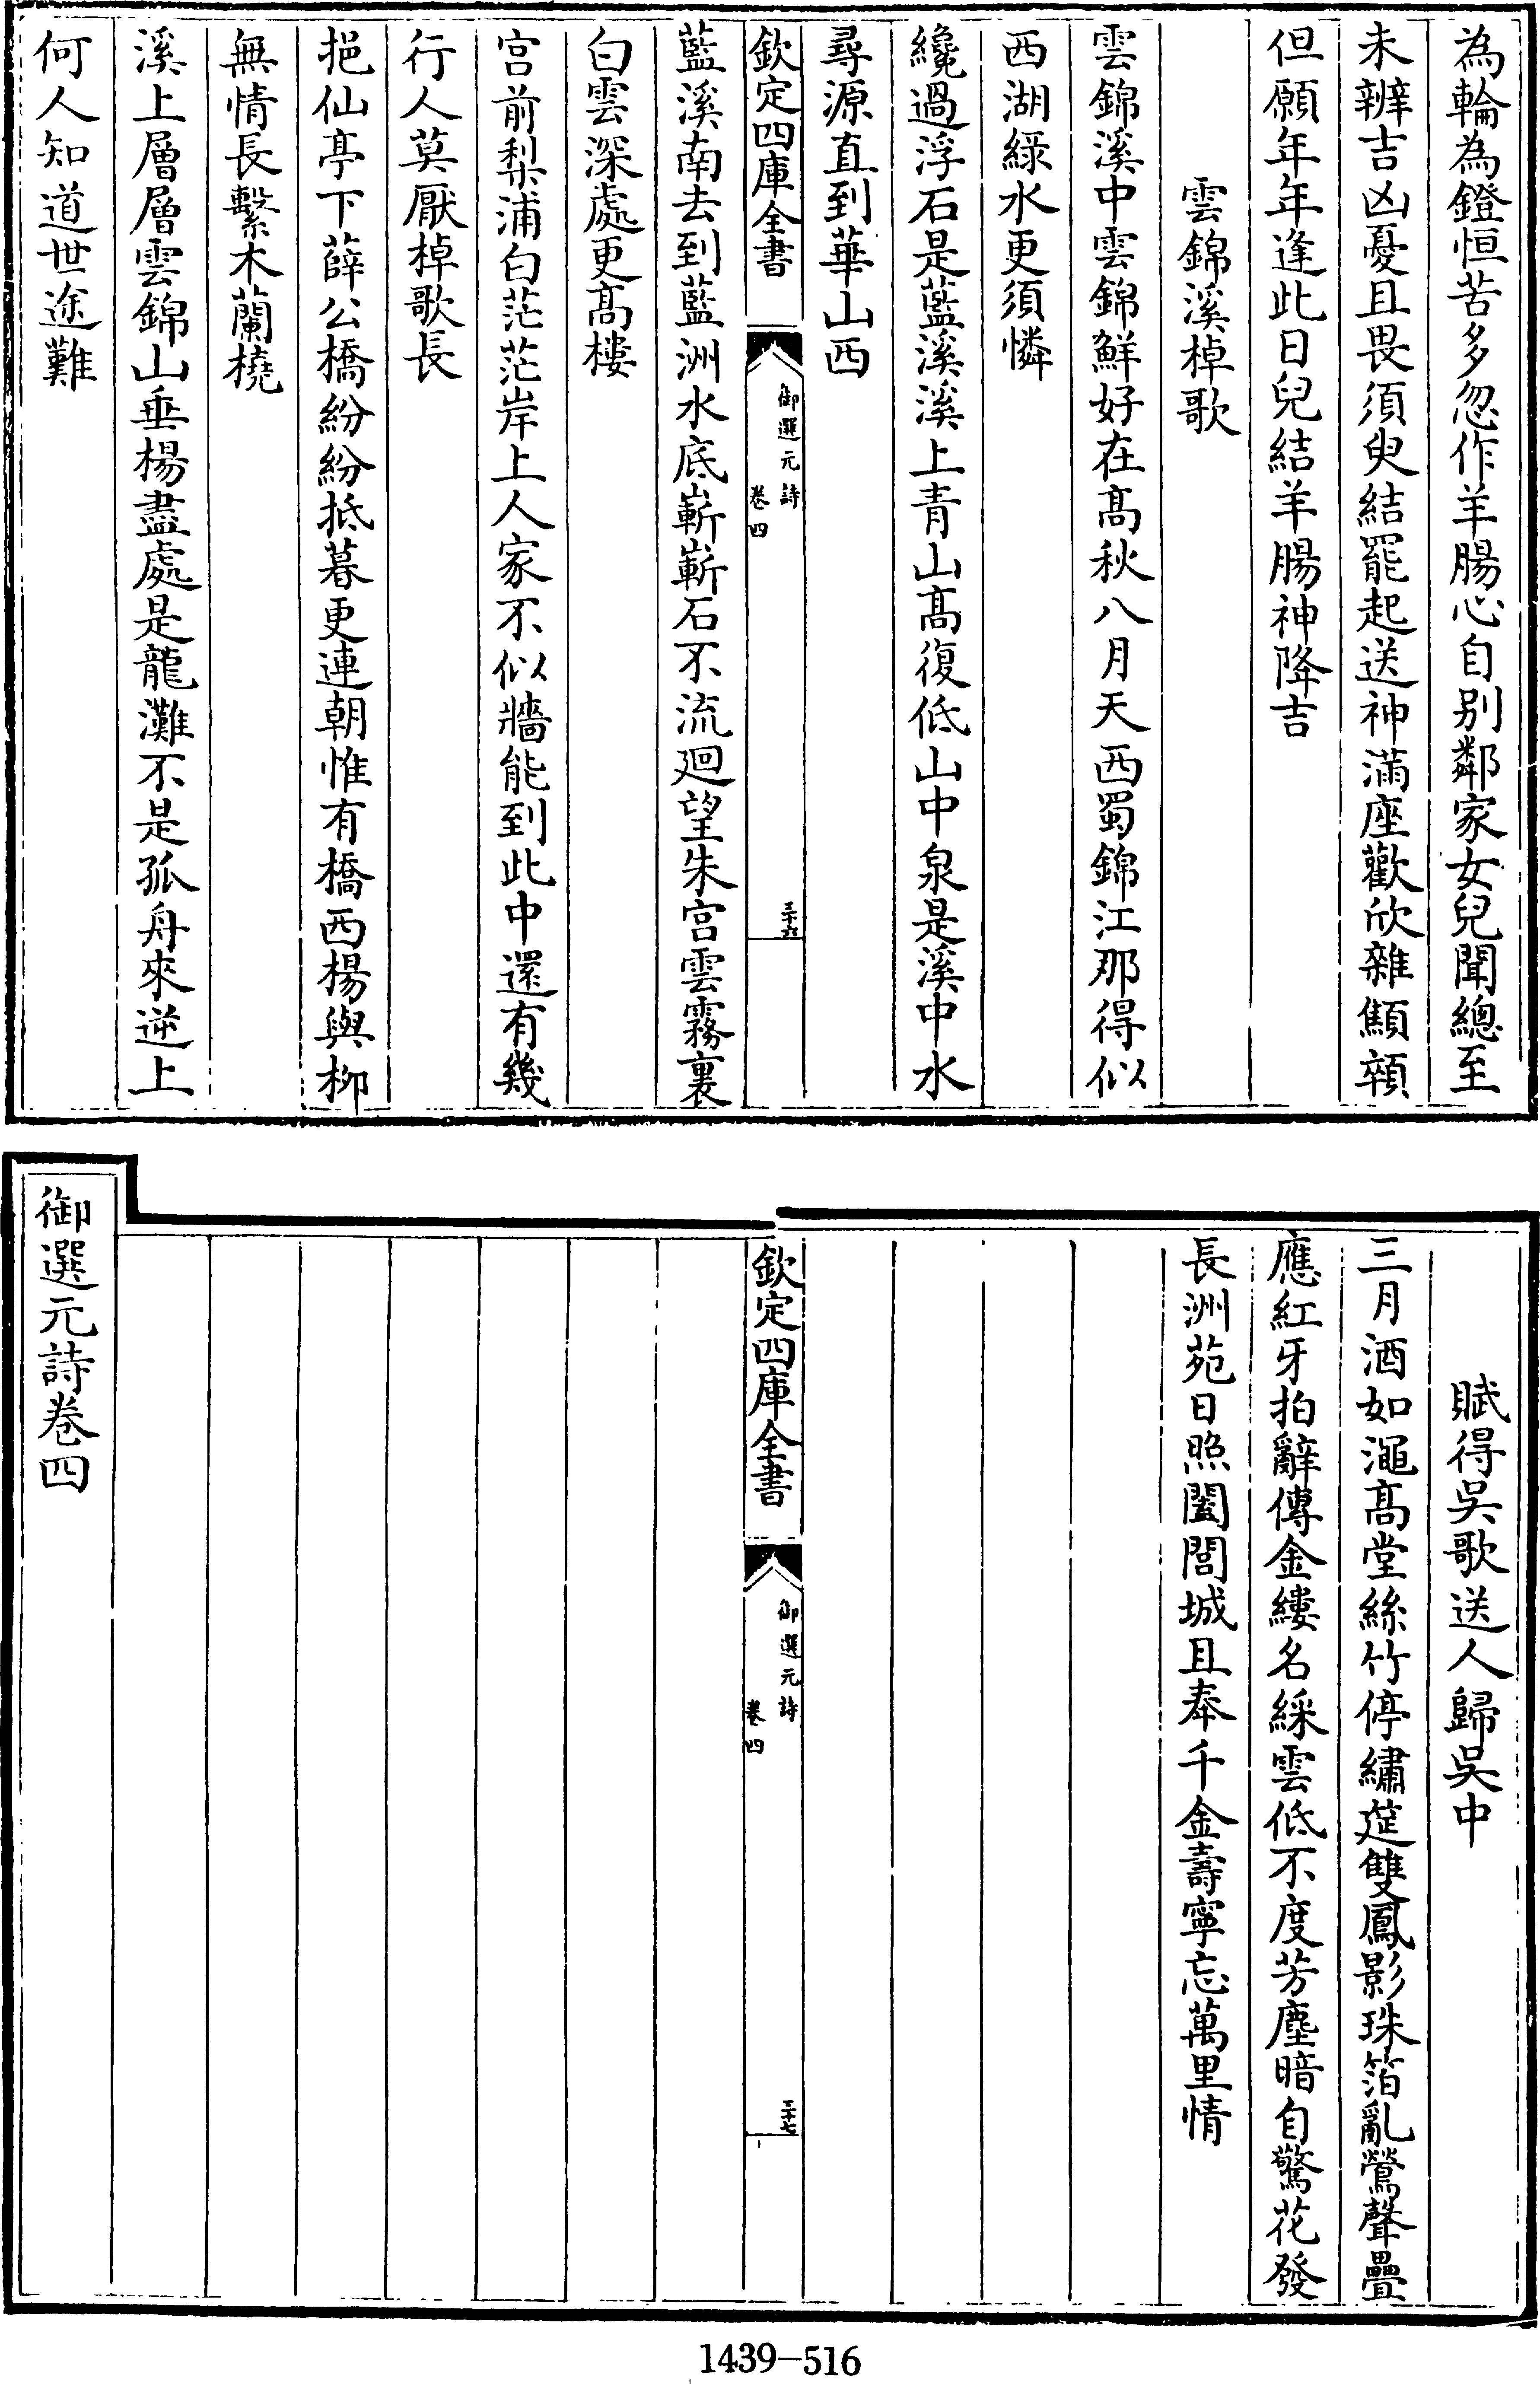 為輪為鐙恒苦多忽作羊腸心自别鄰家女兒聞總至
未辦吉凶憂且畏須臾結罷起送神滿座歡欣雜顦顇
但願年年逢此日兒結羊腸神降吉
雲錦溪棹歌
雲錦溪中雲錦鮮好在髙秋八月天西蜀錦江那得似
西湖緑水更須憐
纔過浮石是藍溪溪上青山髙復低山中泉是溪中水
尋源直到華山西
欽定四庫全書
御選元詩
卷四
三十六
藍溪南去到藍洲水底嶄嶄石不流廻望朱宫雲霧裏
白雲深處更髙樓
宫前梨浦白茫茫岸上人家不似牆能到此中還有幾
行人莫厭棹歌長
挹仙亭下薛公橋紛紛抵暮更連朝惟有橋西楊與柳
無情長繫木蘭橈
溪上層層雲錦山垂楊盡處是龍灘不是孤舟來逆上
何人知道世途難
賦得吳歌送人歸吳中
三月酒如澠髙堂絲竹停繡筵雙鳳影珠箔亂鶯聲疊
應紅牙拍辭傳金縷名綵雲低不度芳塵暗自驚花發
長洲苑日照闔閭城且奉千金壽寧忘萬里情
欽定四庫全書
御選元詩
卷四
三十七
御選元詩卷四
1439-516